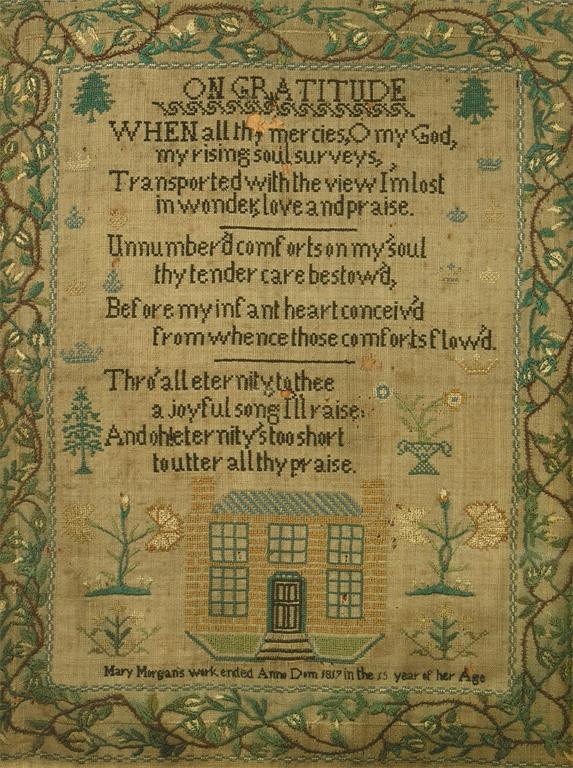 ON GRATITUDE
WHEN all thy mercies, O my God,
my rising soul surveys,
Transported with the view I'm lost
in wonder, love and praise.
Unnumber'd comforts on my soul
thy tender care bestow'd,
Before my infant heart conceiv'd
from whence those comforts flow'd.
Thro' all eternity, to thee
a joyful song I'll raise;
And oh! eternity's too short
to utter all thy praise.
Mary Morgan's work ended Anno Dom 1817 in the 15 year of her Age